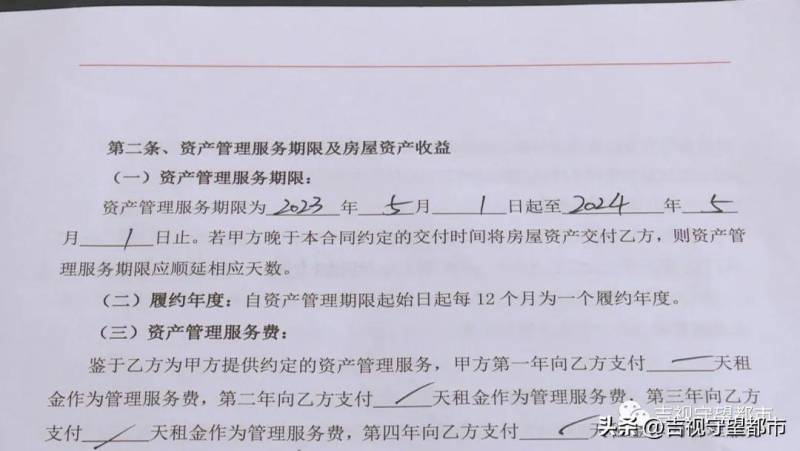 第二条、资产管理服务期限及房屋资产收益
（一）资产管理服务期限：
资产管理服务期限为 2023 年 5 月 1 日起至 2024 年 5
月 1 日止。若甲方晚于本合同约定的交付时间将房屋资产交付乙方，则资产管
理服务期限应顺延相应天数。
（二）履约年度：自资产管理期限起始日起每 12 个月为一个履约年度。
（三）资产管理服务费：
鉴于乙方为甲方提供约定的资产管理服务，甲方第一年向乙方支付 — 天租
金作为管理服务费，第二年向乙方支付 / 天租金作为管理服务费，第三年向乙方
支付 / 天租金作为管理服务费，第四年向乙方支付 / 天租金
吉视守望都市
头条 @吉视守望都市